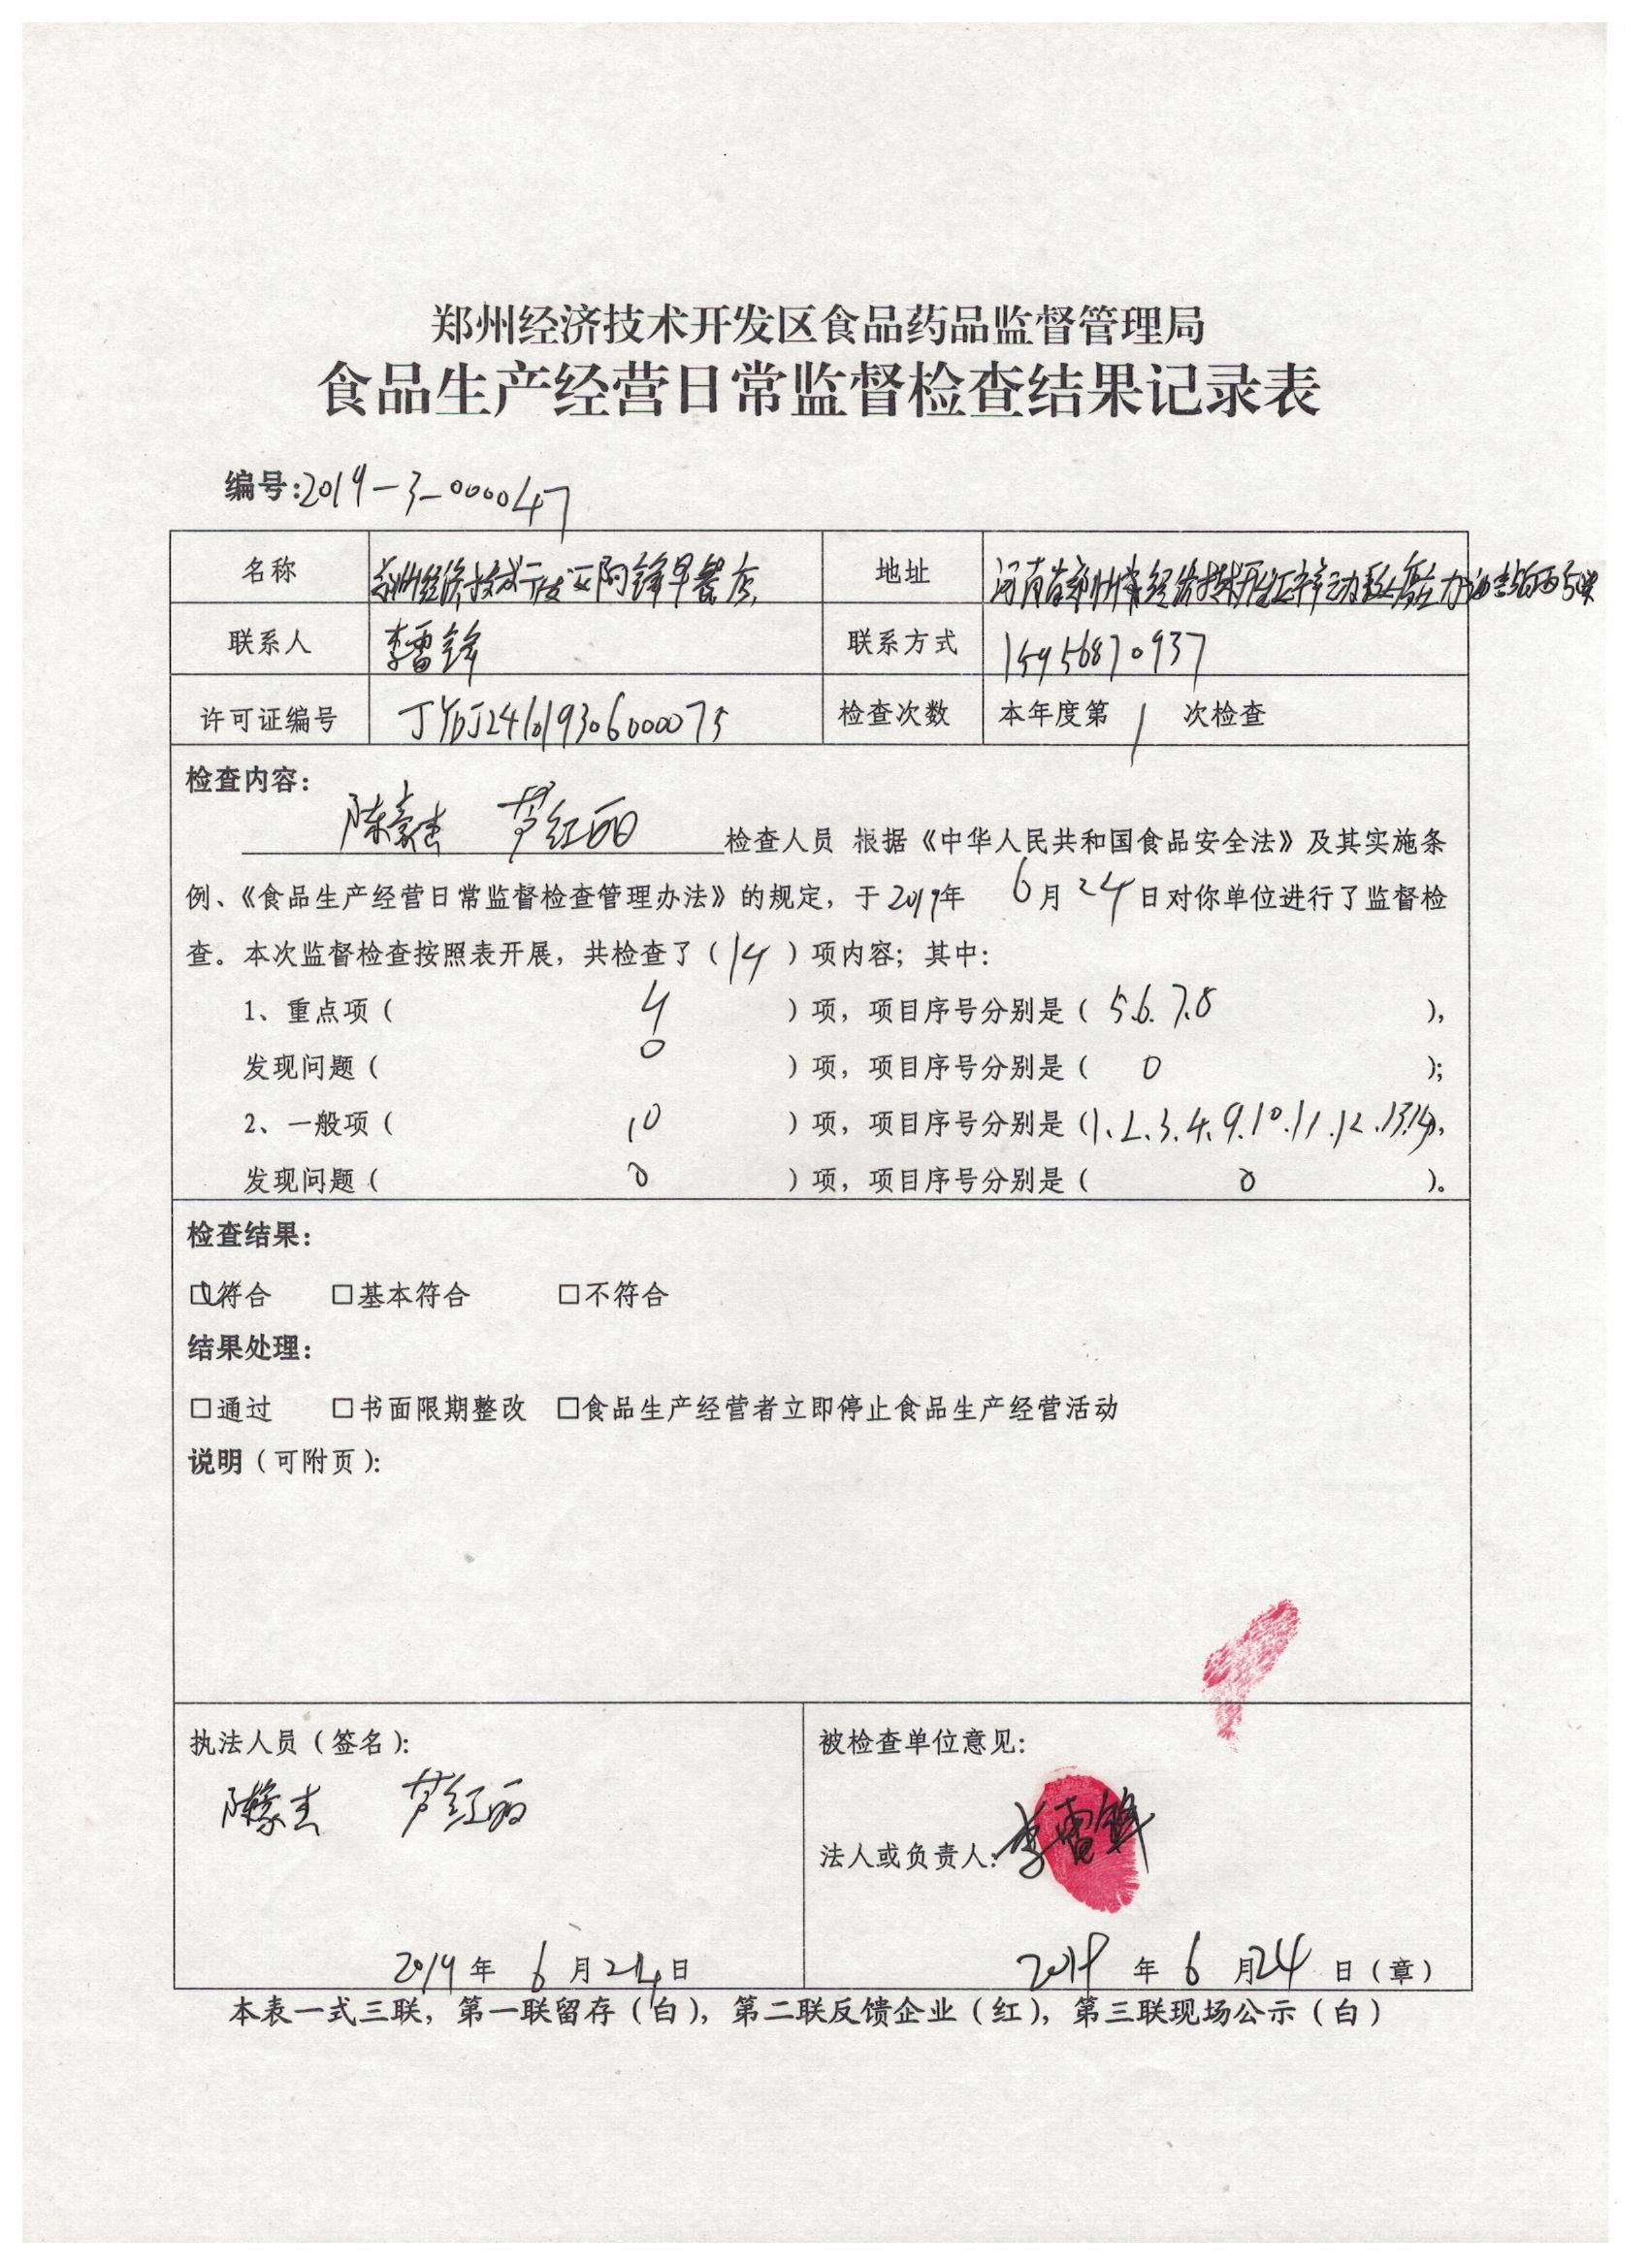 郑州经济技术开发区食品药品监督管理局
食品生产经营日常监督检查结果记录表
编号:2019-3-0000047
名称 郑州经济技术开发区阿锋早餐店 地址 河南省郑州市经济技术开发区
联系人 李雷锋 联系方式 15956870937
许可证编号 JYDJ241019306000075 检查次数 本年度第1次检查
检查内容:
陈豪杰 芦红丽 检查人员 根据《中华人民共和国食品安全法》及其实施条
例、《食品生产经营日常监督检查管理办法》的规定，于2019年6月24日对你单位进行了监督检
查。本次监督检查按照表开展，共检查了（14）项内容；其中：
1、重点项（4）项，项目序号分别是（5.6.7.8），
发现问题（0）项，项目序号分别是（0）；
2、一般项（10）项，项目序号分别是（1.2.3.4.9.10.11.12.13.14），
发现问题（0）项，项目序号分别是（0）。
检查结果：
☑符合 □基本符合 □不符合
结果处理：
□通过 □书面限期整改 □食品生产经营者立即停止食品生产经营活动
说明（可附页）：
执法人员（签名）： 被检查单位意见：
陈豪杰 芦红丽
法人或负责人：李雷锋
2019年6月24日 2019年6月24日（章）
本表一式三联，第一联留存（白），第二联反馈企业（红），第三联现场公示（白）